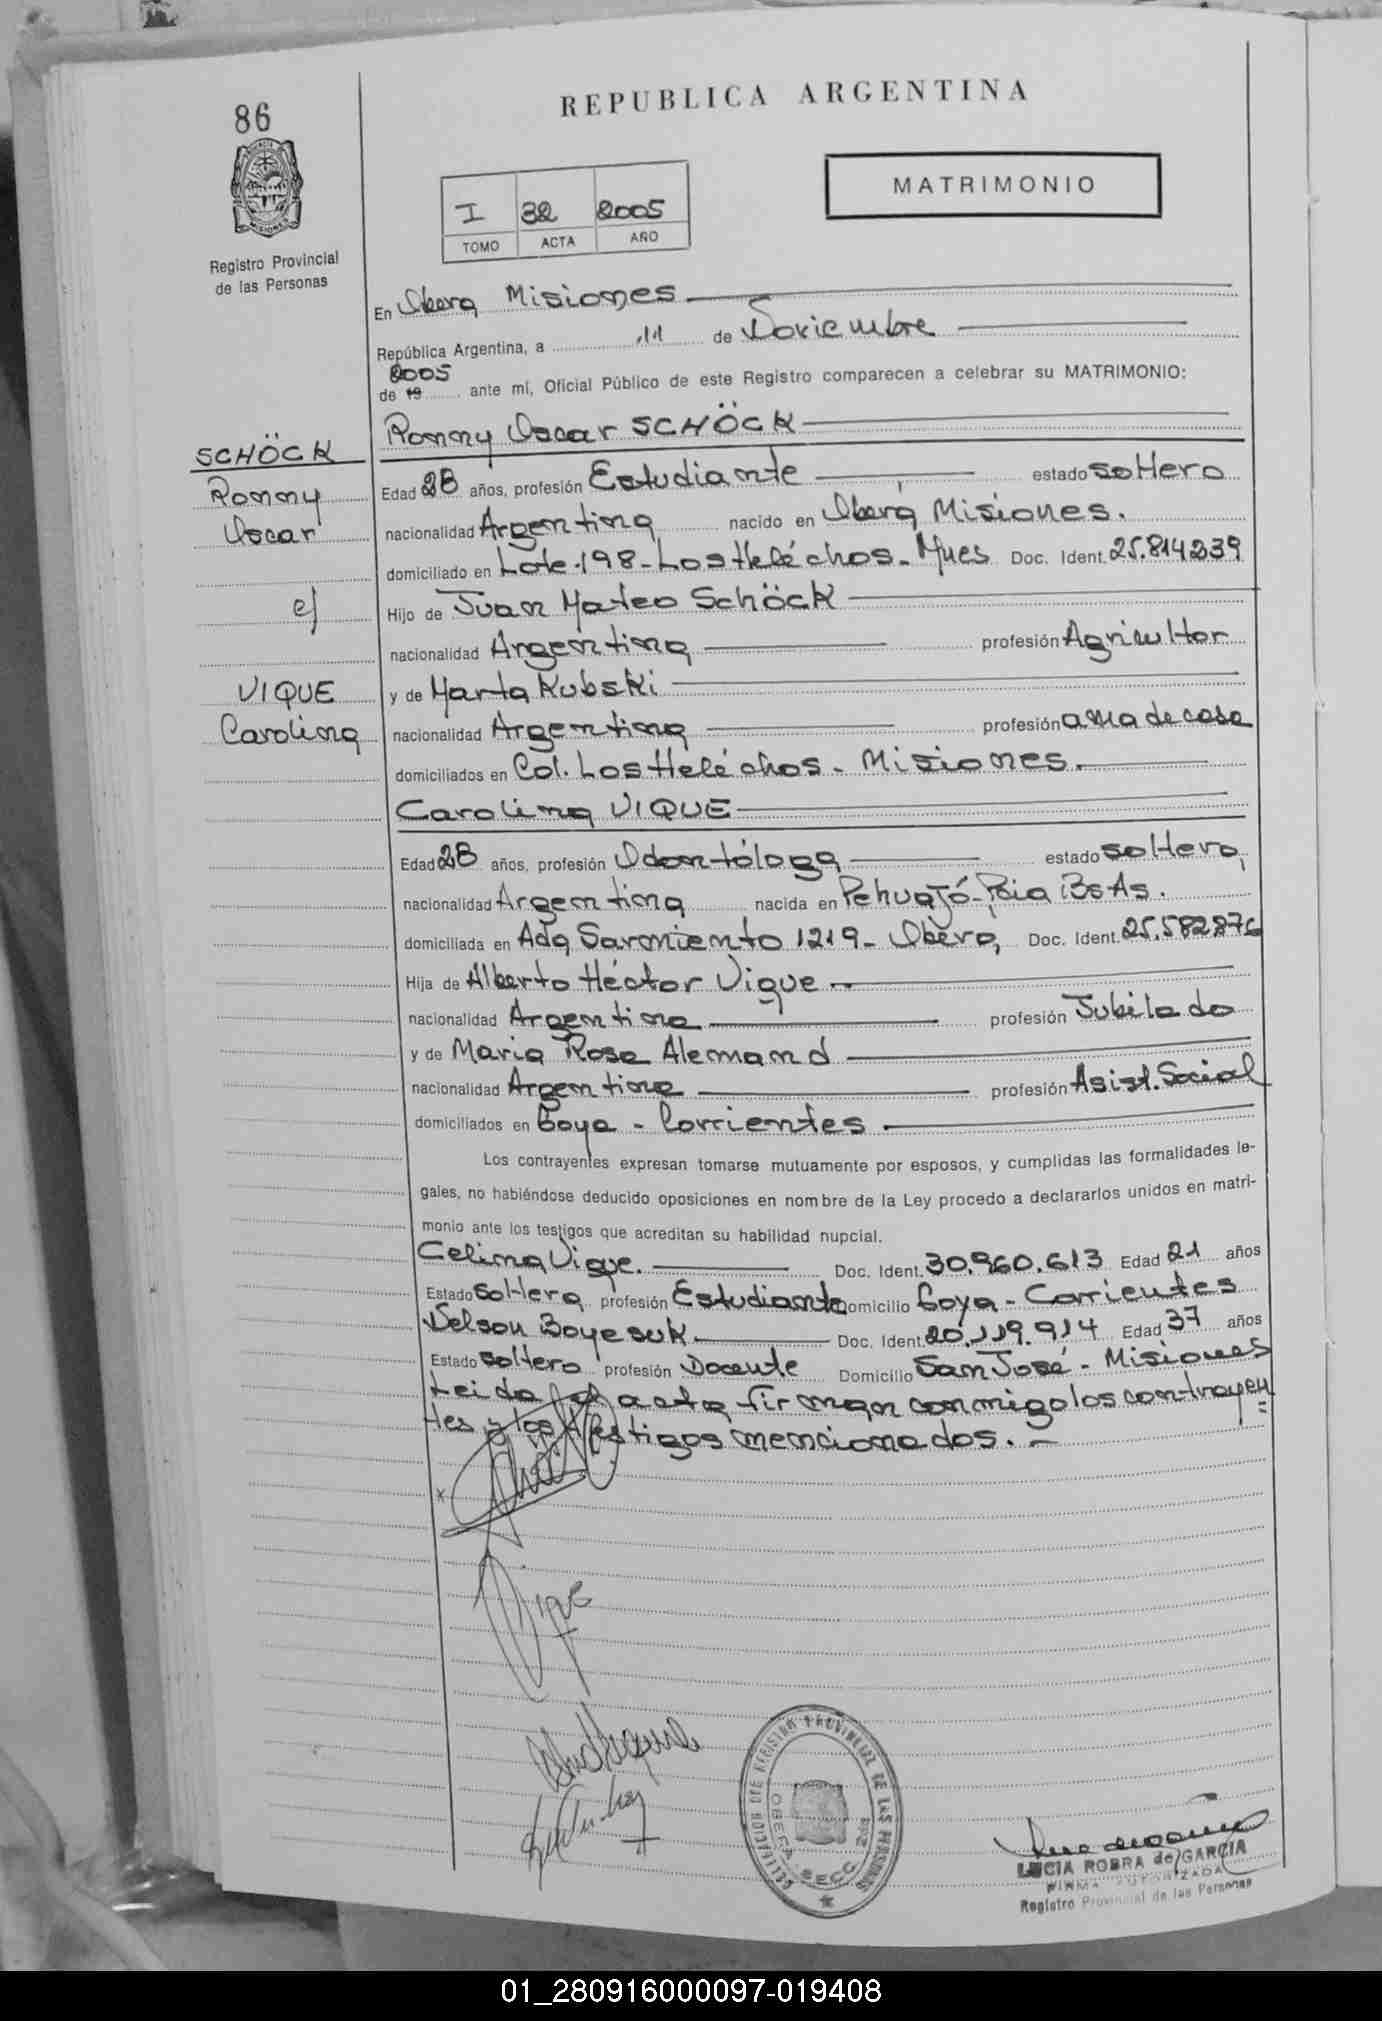 86
REPUBLICA ARGENTINA
MATRIMONIO
I 32 2005
TOMO ACTA AÑO
Registro Provincial
de las Personas
En Oberá Misiones
República Argentina, a 11 de Noviembre
2005
de 19 ante mí, Oficial Público de este Registro comparecen a celebrar su MATRIMONIO:
Ronny Oscar SCHÖCK
SCHÖCK
Ronny
Oscar
c/
VIQUE
Carolina
Edad 28 años, profesión Estudiante estado soltero
nacionalidad Argentina nacido en Oberá Misiones.
domiciliado en Lote 198-Los Heléchos-Mnes Doc. Ident. 25.814239
Hijo de Juan Mateo Schöck
nacionalidad Argentina profesión Agricultor
y de Marta Kubski
nacionalidad Argentina profesión ama de casa
domiciliados en Col. Los Heléchos - Misiones.
Carolina VIQUE
Edad 28 años, profesión Odontóloga estado soltera
nacionalidad Argentina nacida en Pehuajó-Pcia Bs As.
domiciliada en Adq Sarmiento 1219- Oberá Doc. Ident. 25.582876
Hija de Alberto Héctor Vique
nacionalidad Argentina profesión Jubilado
y de Maria Rosa Alemand
nacionalidad Argentina profesión Asist. Social
domiciliados en Goya - Corrientes
Los contrayentes expresan tomarse mutuamente por esposos, y cumplidas las formalidades le-
gales, no habiéndose deducido oposiciones en nombre de la Ley procedo a declararlos unidos en matri-
monio ante los testigos que acreditan su habilidad nupcial.
Celina Vique. Doc. Ident. 30.960.613 Edad 21 años
Estado Soltera profesión Estudiante Domicilio Goya - Corrientes
Nelson Boyesuk Doc. Ident. 20.119.914 Edad 37 años
Estado soltero profesión Docente Domicilio San José - Misiones
Leida el acta firman conmigo los contrayen
tes y los testigos mencionados.-
x
Vique
COLLEGACION DEL REGISTRO PROVINCIAL DE LAS PERSONAS
OBERA SECC.
LUCIA ROBRA de GARCIA
FIRMA AUTORIZADA
Registro Provincial de las Personas
01_280916000097-019408